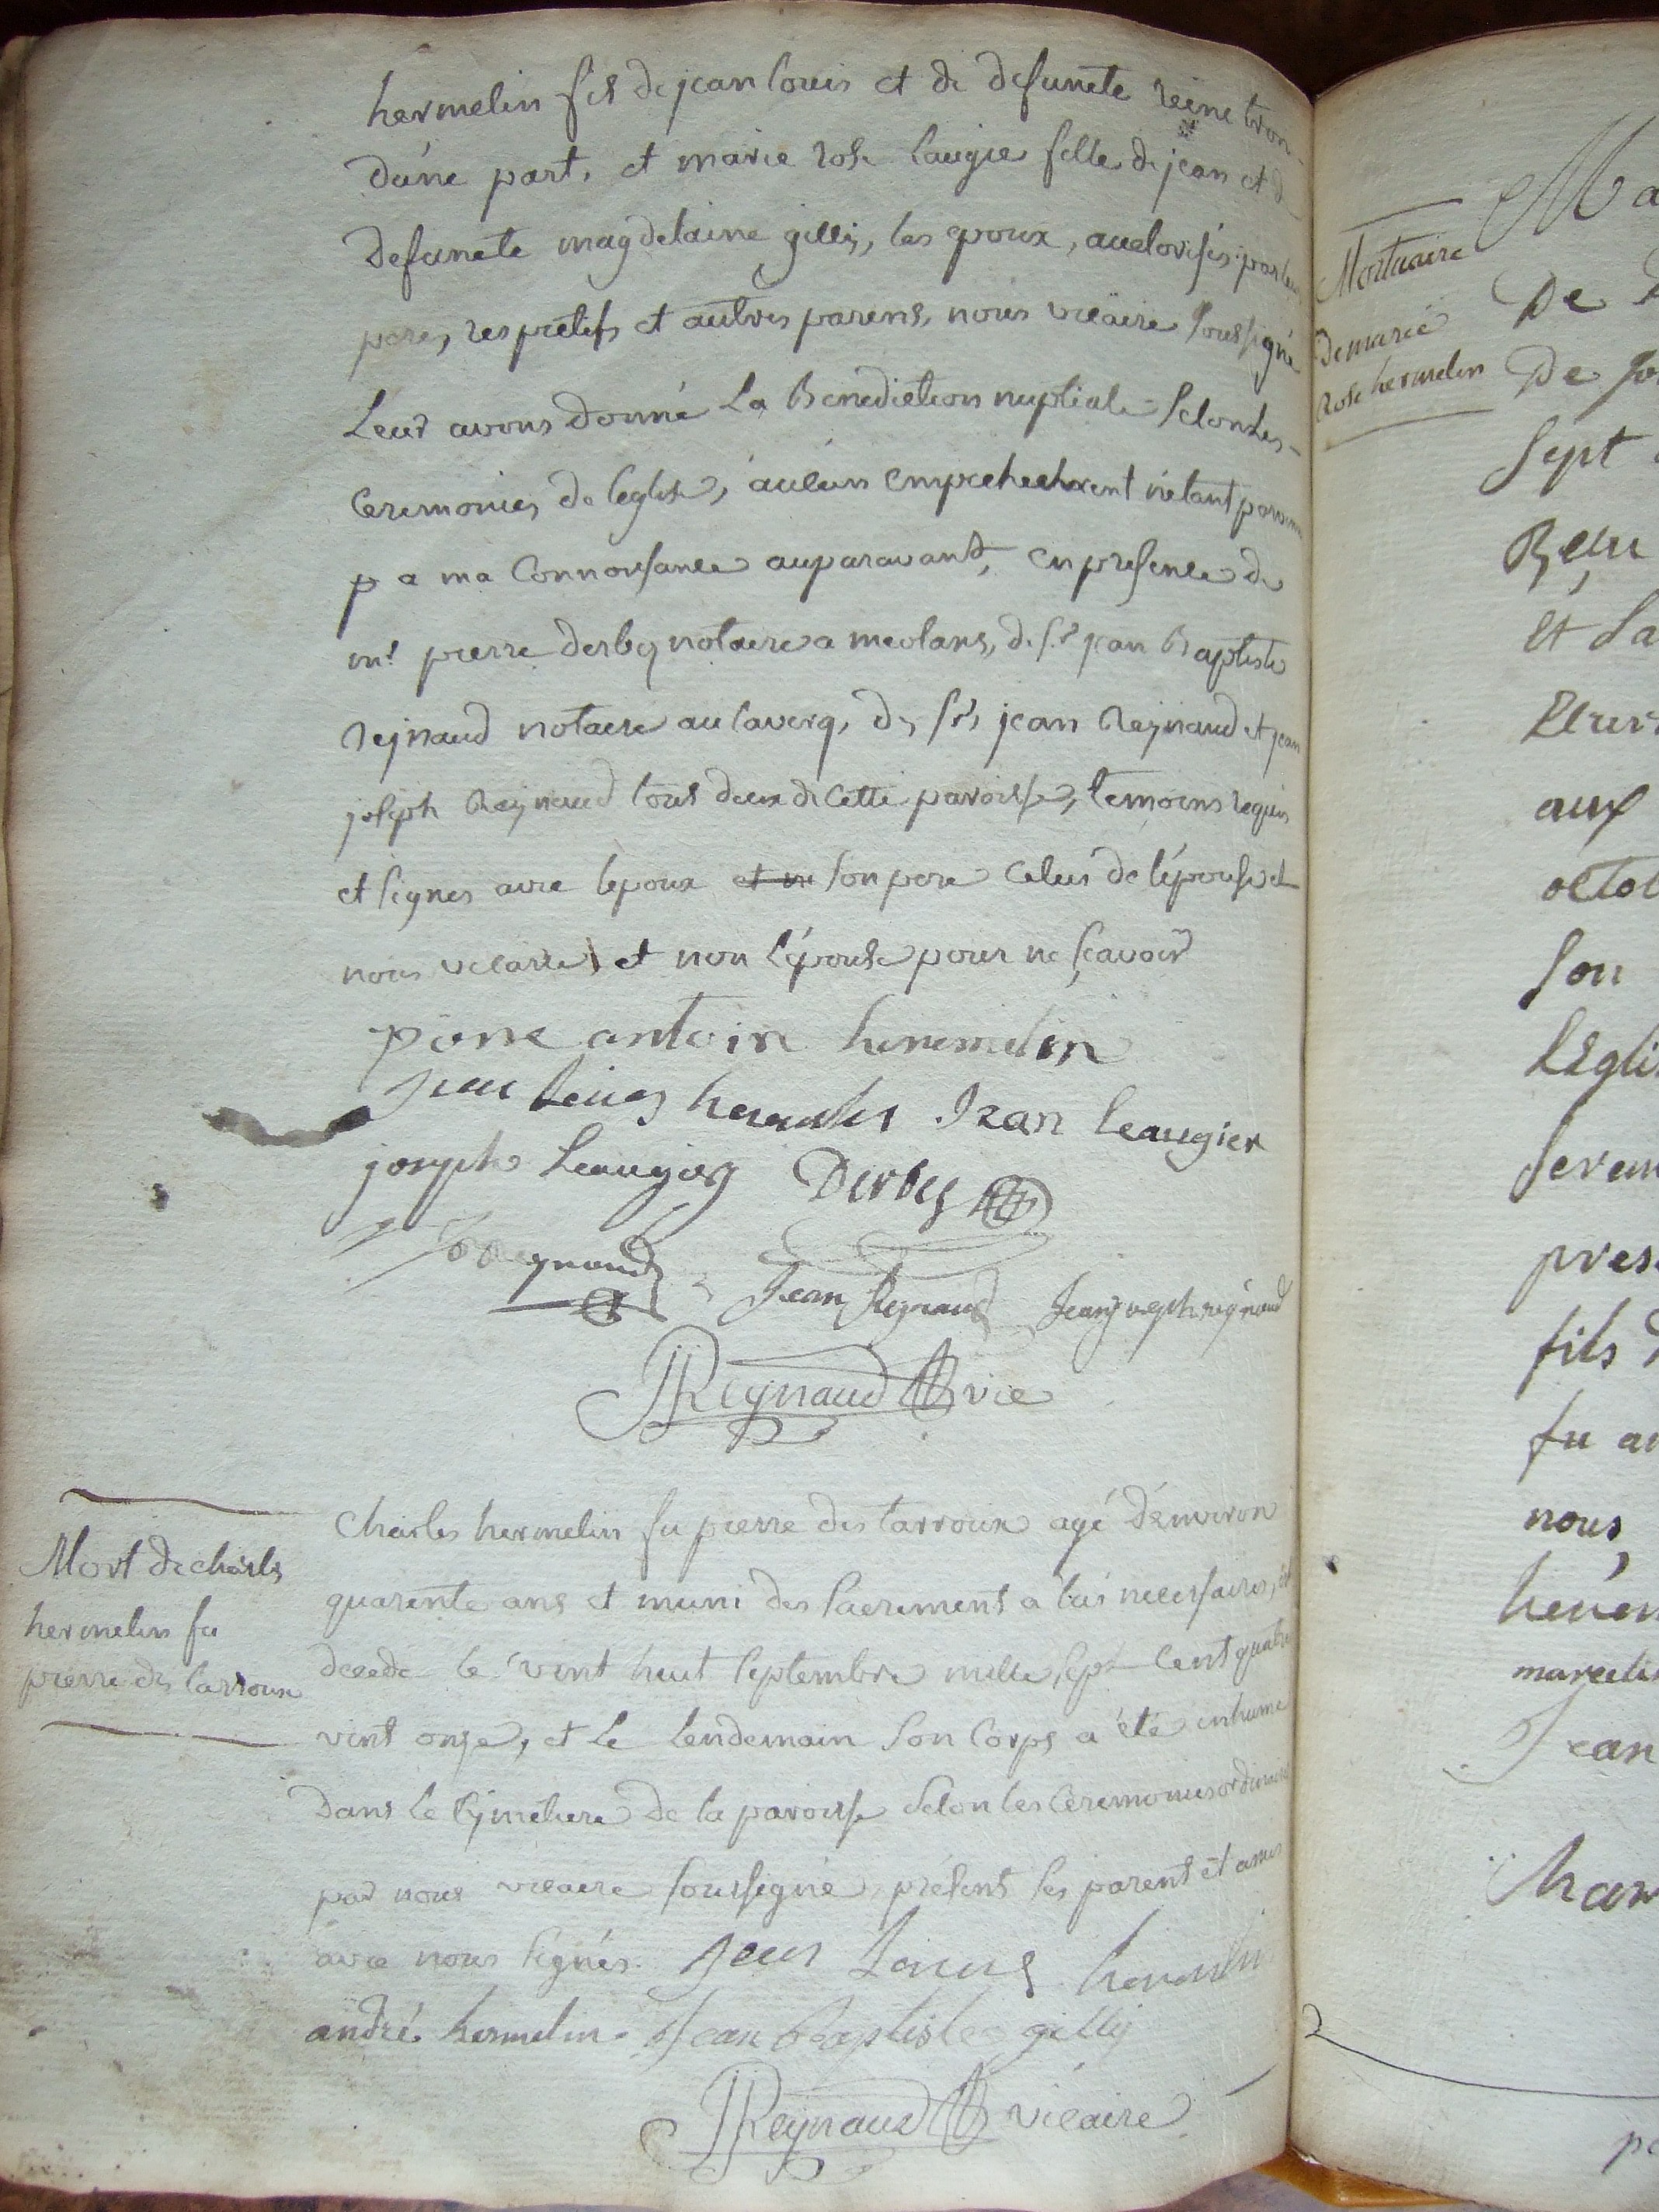 hermelin fils de jean louis et de defuncte reine tron-
d'une part, et marie rose laugier fille de jean et d
defuncte magdelaine gilly, les epoux, auctorisés par leur
peres respectifs et autres parens, nous vicaire soussigné
Leur avons donné La Benediction nuptiale selon les-
Ceremonies de l'eglise, aucun empechement n'etant parvenu
p a ma Connoissance auparavant, en presence de
mt pierre derbez notaire a meolans, de sr jean Baptiste
reynaud notaire au laverq, des srs jean Reynaud et jean
joseph Reynaud tous deux de cette paroisse, temoins requis
et signes avec l'epoux son pere Celui de l'épouse et
nous vicaire et non l'épouse pour ne sçavoir
pierre antoine hermelin
jean louis hermelin Jean leaugier
joseph Leaugier Derbez
Reynaud
Jean Reynaud Jean joseph reynaud
Reynaud vic
Mort de charles
hermelin fu
pierre des tarroux
Charles hermelin fu pierre des tarroux agé d'environ
quarente ans et muni des sacrements a lui necessaires, est
decede le vint huit septembre mille sept Cent quatre
vint onze, et Le Lendemain son Corps a été inhumé
Dans le Cymetiere de la paroisse selon les Ceremonies ordinaires
par nous vicaire soussigné, présent ses parents et amis
avec nous signés. jean Louis hermelin
andré hermelin Jean Baptiste gilly
Reynaud vicaire
Mortuaire
de marie
rose hermelin
Ma
De
De jo
sept
Reçu
Et La
Leurs
aux
octob
son
L'Egli
pres
fils d
fu an
nous,
Jean